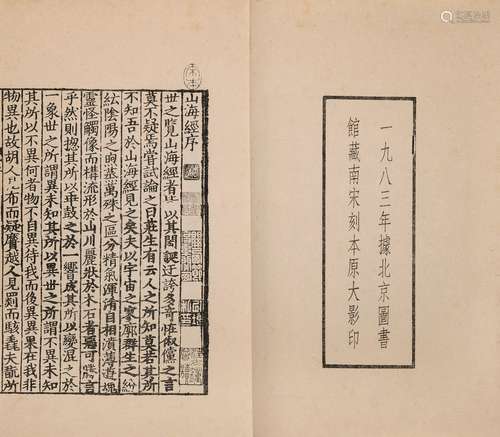 一九八三年據北京圖書
館藏南宋刻本原大影印
山海經序
世之覽山海經者皆以其閎誕迂誇多奇怪俶儻之言
莫不疑焉嘗試論之曰莊生有云人之所知莫若其所
不知吾於山海經見之矣夫以宇宙之寥廓群生之紛
紜陰陽之煦蒸萬殊之區分精氣渾淆自相濆薄遊魂
靈怪觸像而構流形於山川麗狀於木石者惡可勝言
乎然則摠其所以乖鼓之於一響成其所以變混之於
一象世之所謂異未知其所以異世之所謂不異未知
其所以不異何者物不自異待我而後異異果在我非
物異也故胡人見布而疑黂越人見罽而駭毳夫翫所